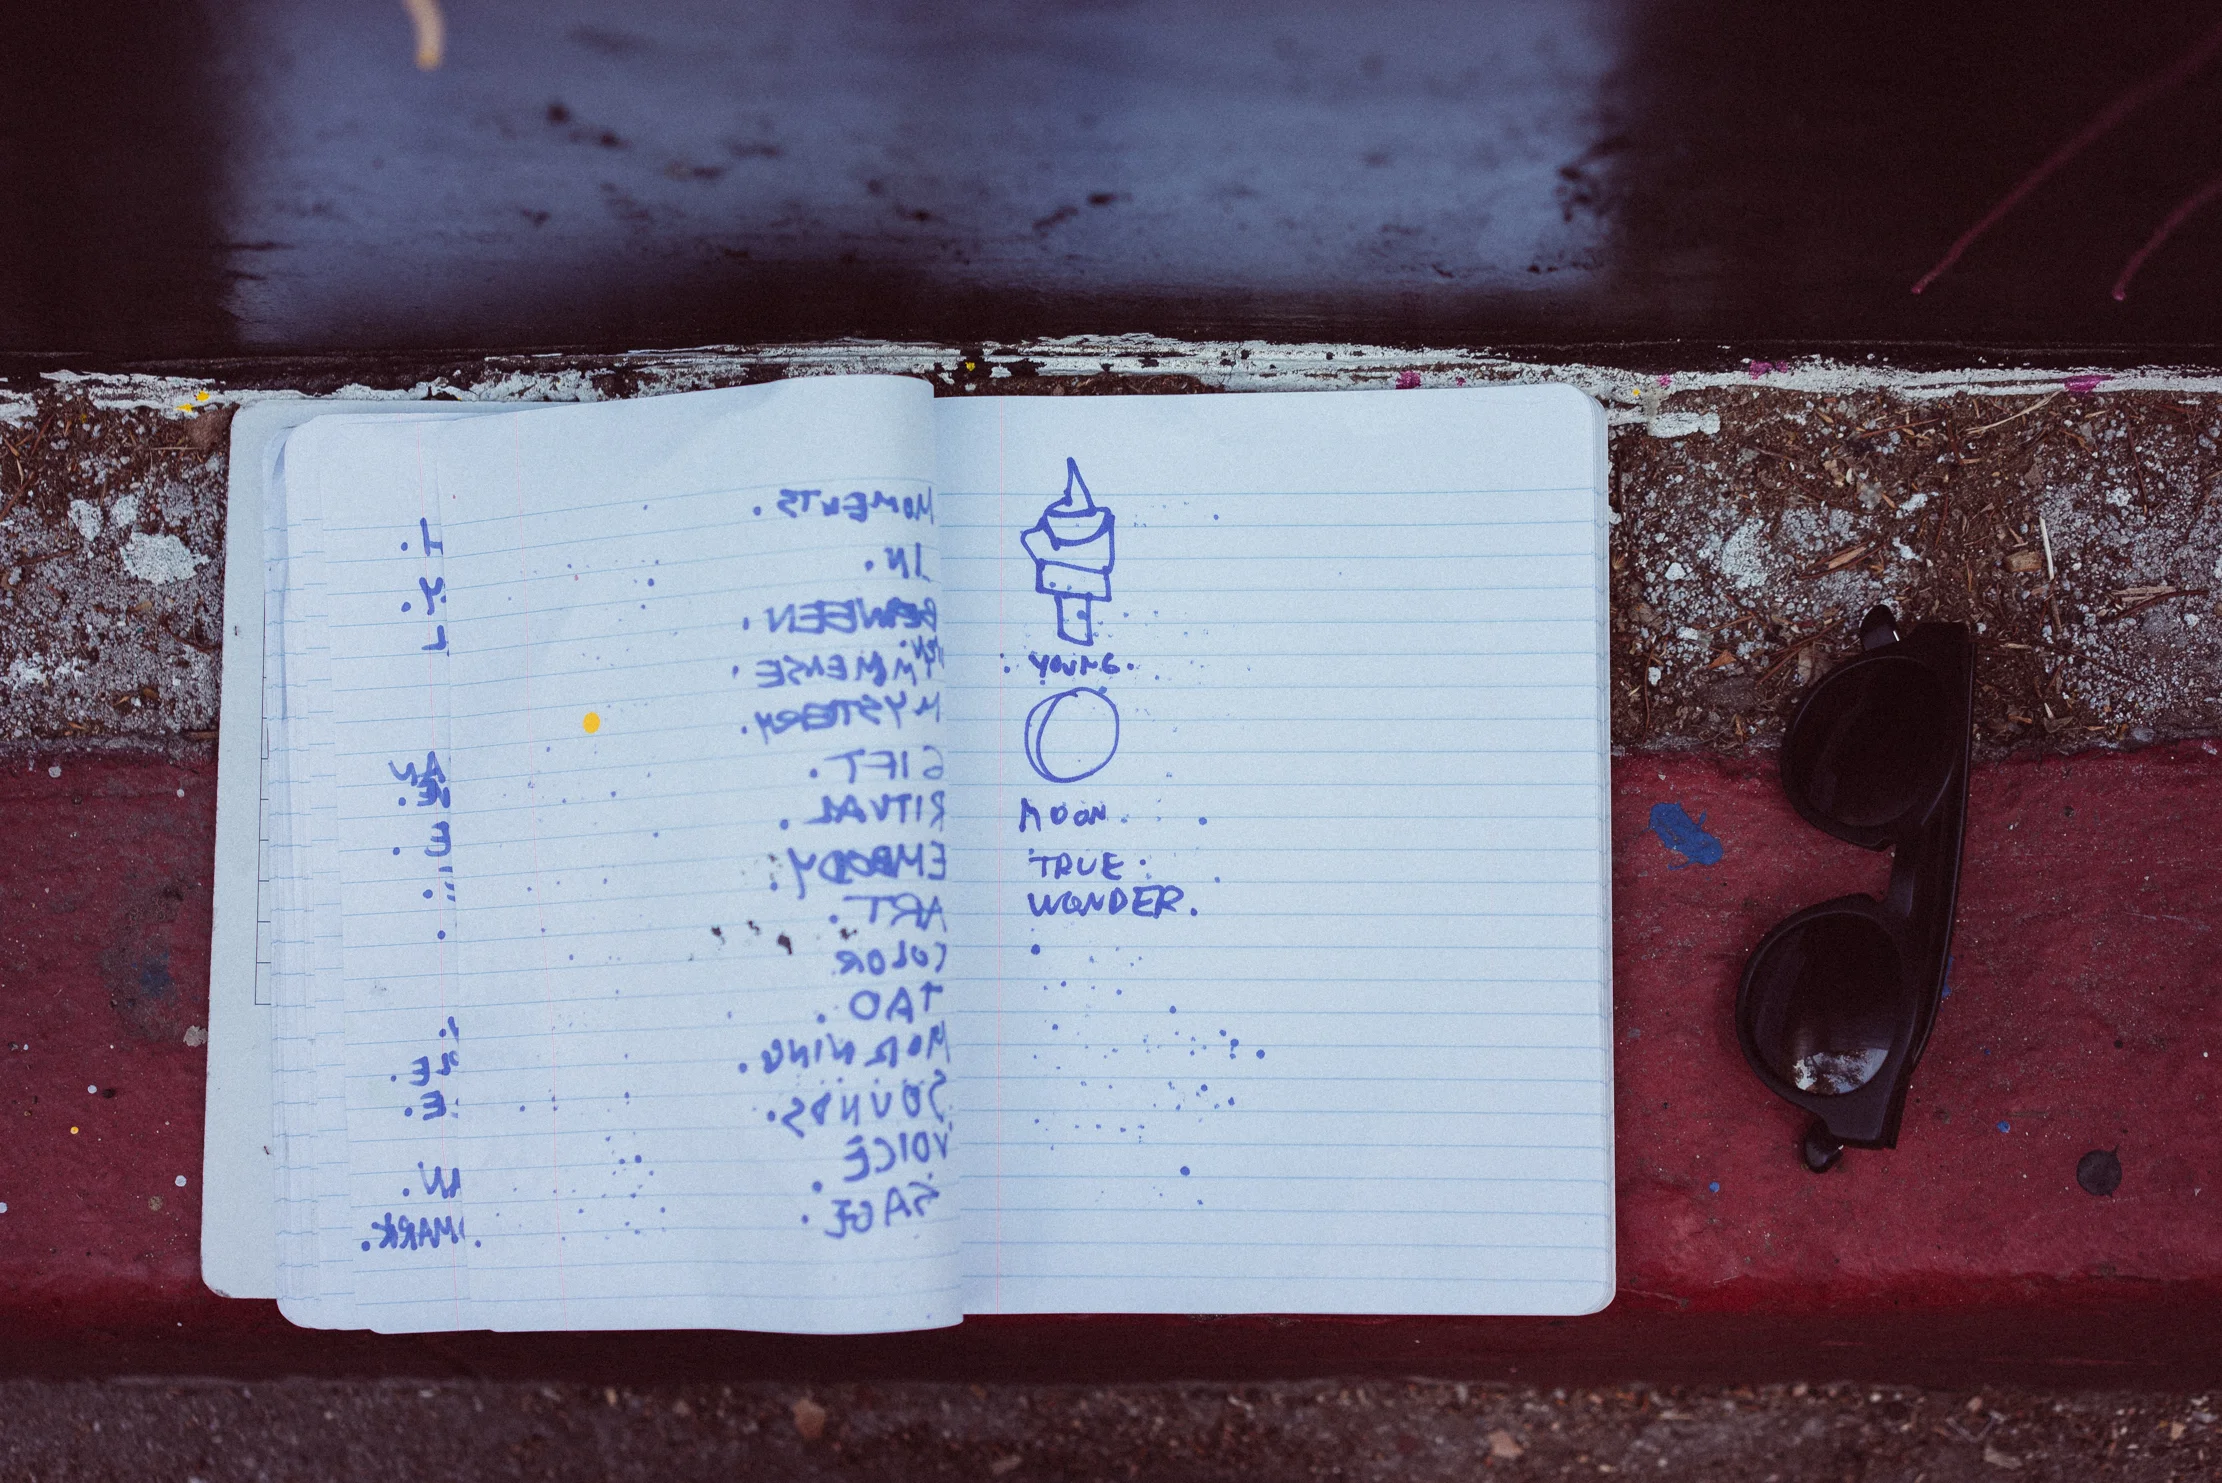 MOMENTS.
IN.
BETWEEN.
IMMENSE.
MYSTERY.
GIFT.
RITUAL.
EMBODY.
ART.
COLOR
TAO.
MORNING.
SOUNDS.
VOICE.
SAGE.
MARK.
.YOUNG.
MOON.
TRUE.
WONDER.